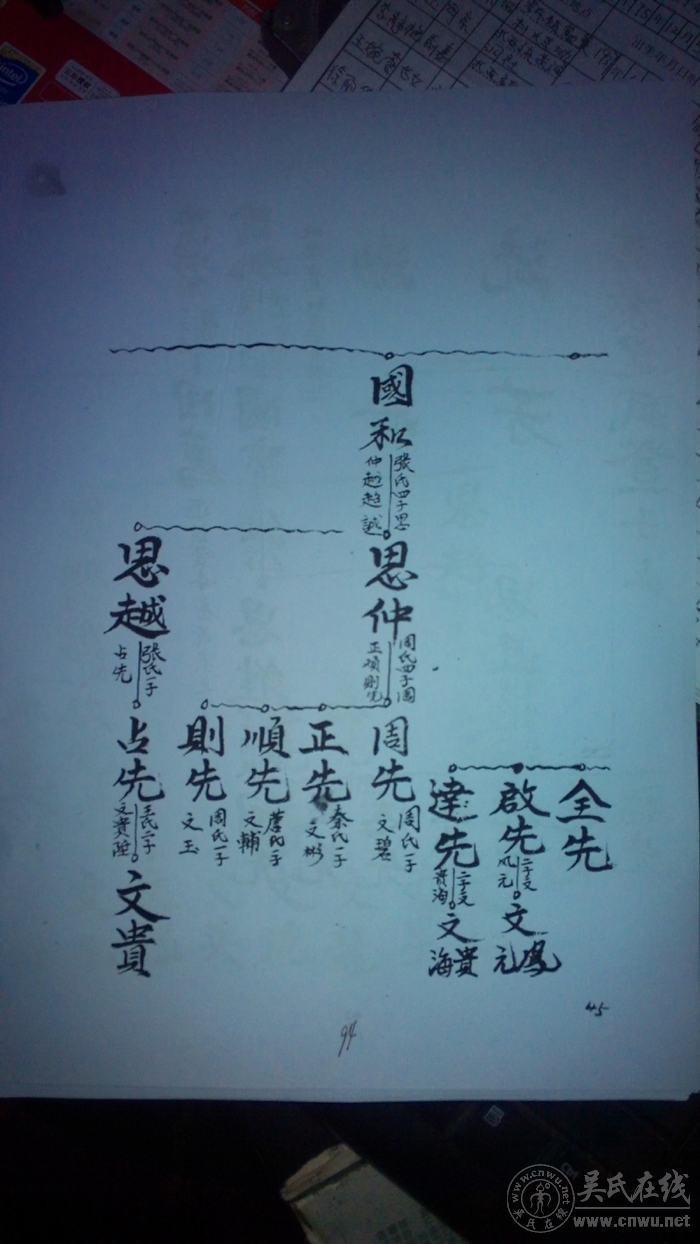 國和
張氏四子思
仲越趋誠
思仲
周氏四子周
正順則先
思越
張氏一子
占先
全先
啟先
二子文
鳳元
文
鳳元
達先
二子文
貴海
文
貴海
周先
周氏一子
文碧
正先
秦氏一子
文彬
順先
詹氏一子
文輔
則先
周氏一子
文玉
占先
王氏二子
文貴陞
文貴
94
45
吴氏在线
www.cnwu.net